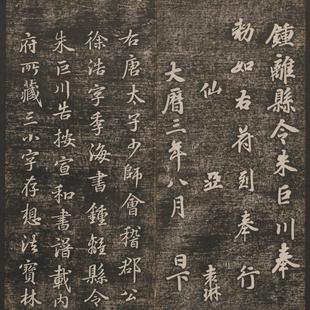 鍾離縣令朱巨川奉
勑如右符到奉行
仙 亞 素琳
大曆三年八月 日下
右唐太子少師會稽郡公
徐浩字季海書鍾離縣令
朱巨川告按宣和書譜載內
府所藏三小字存想法寶林